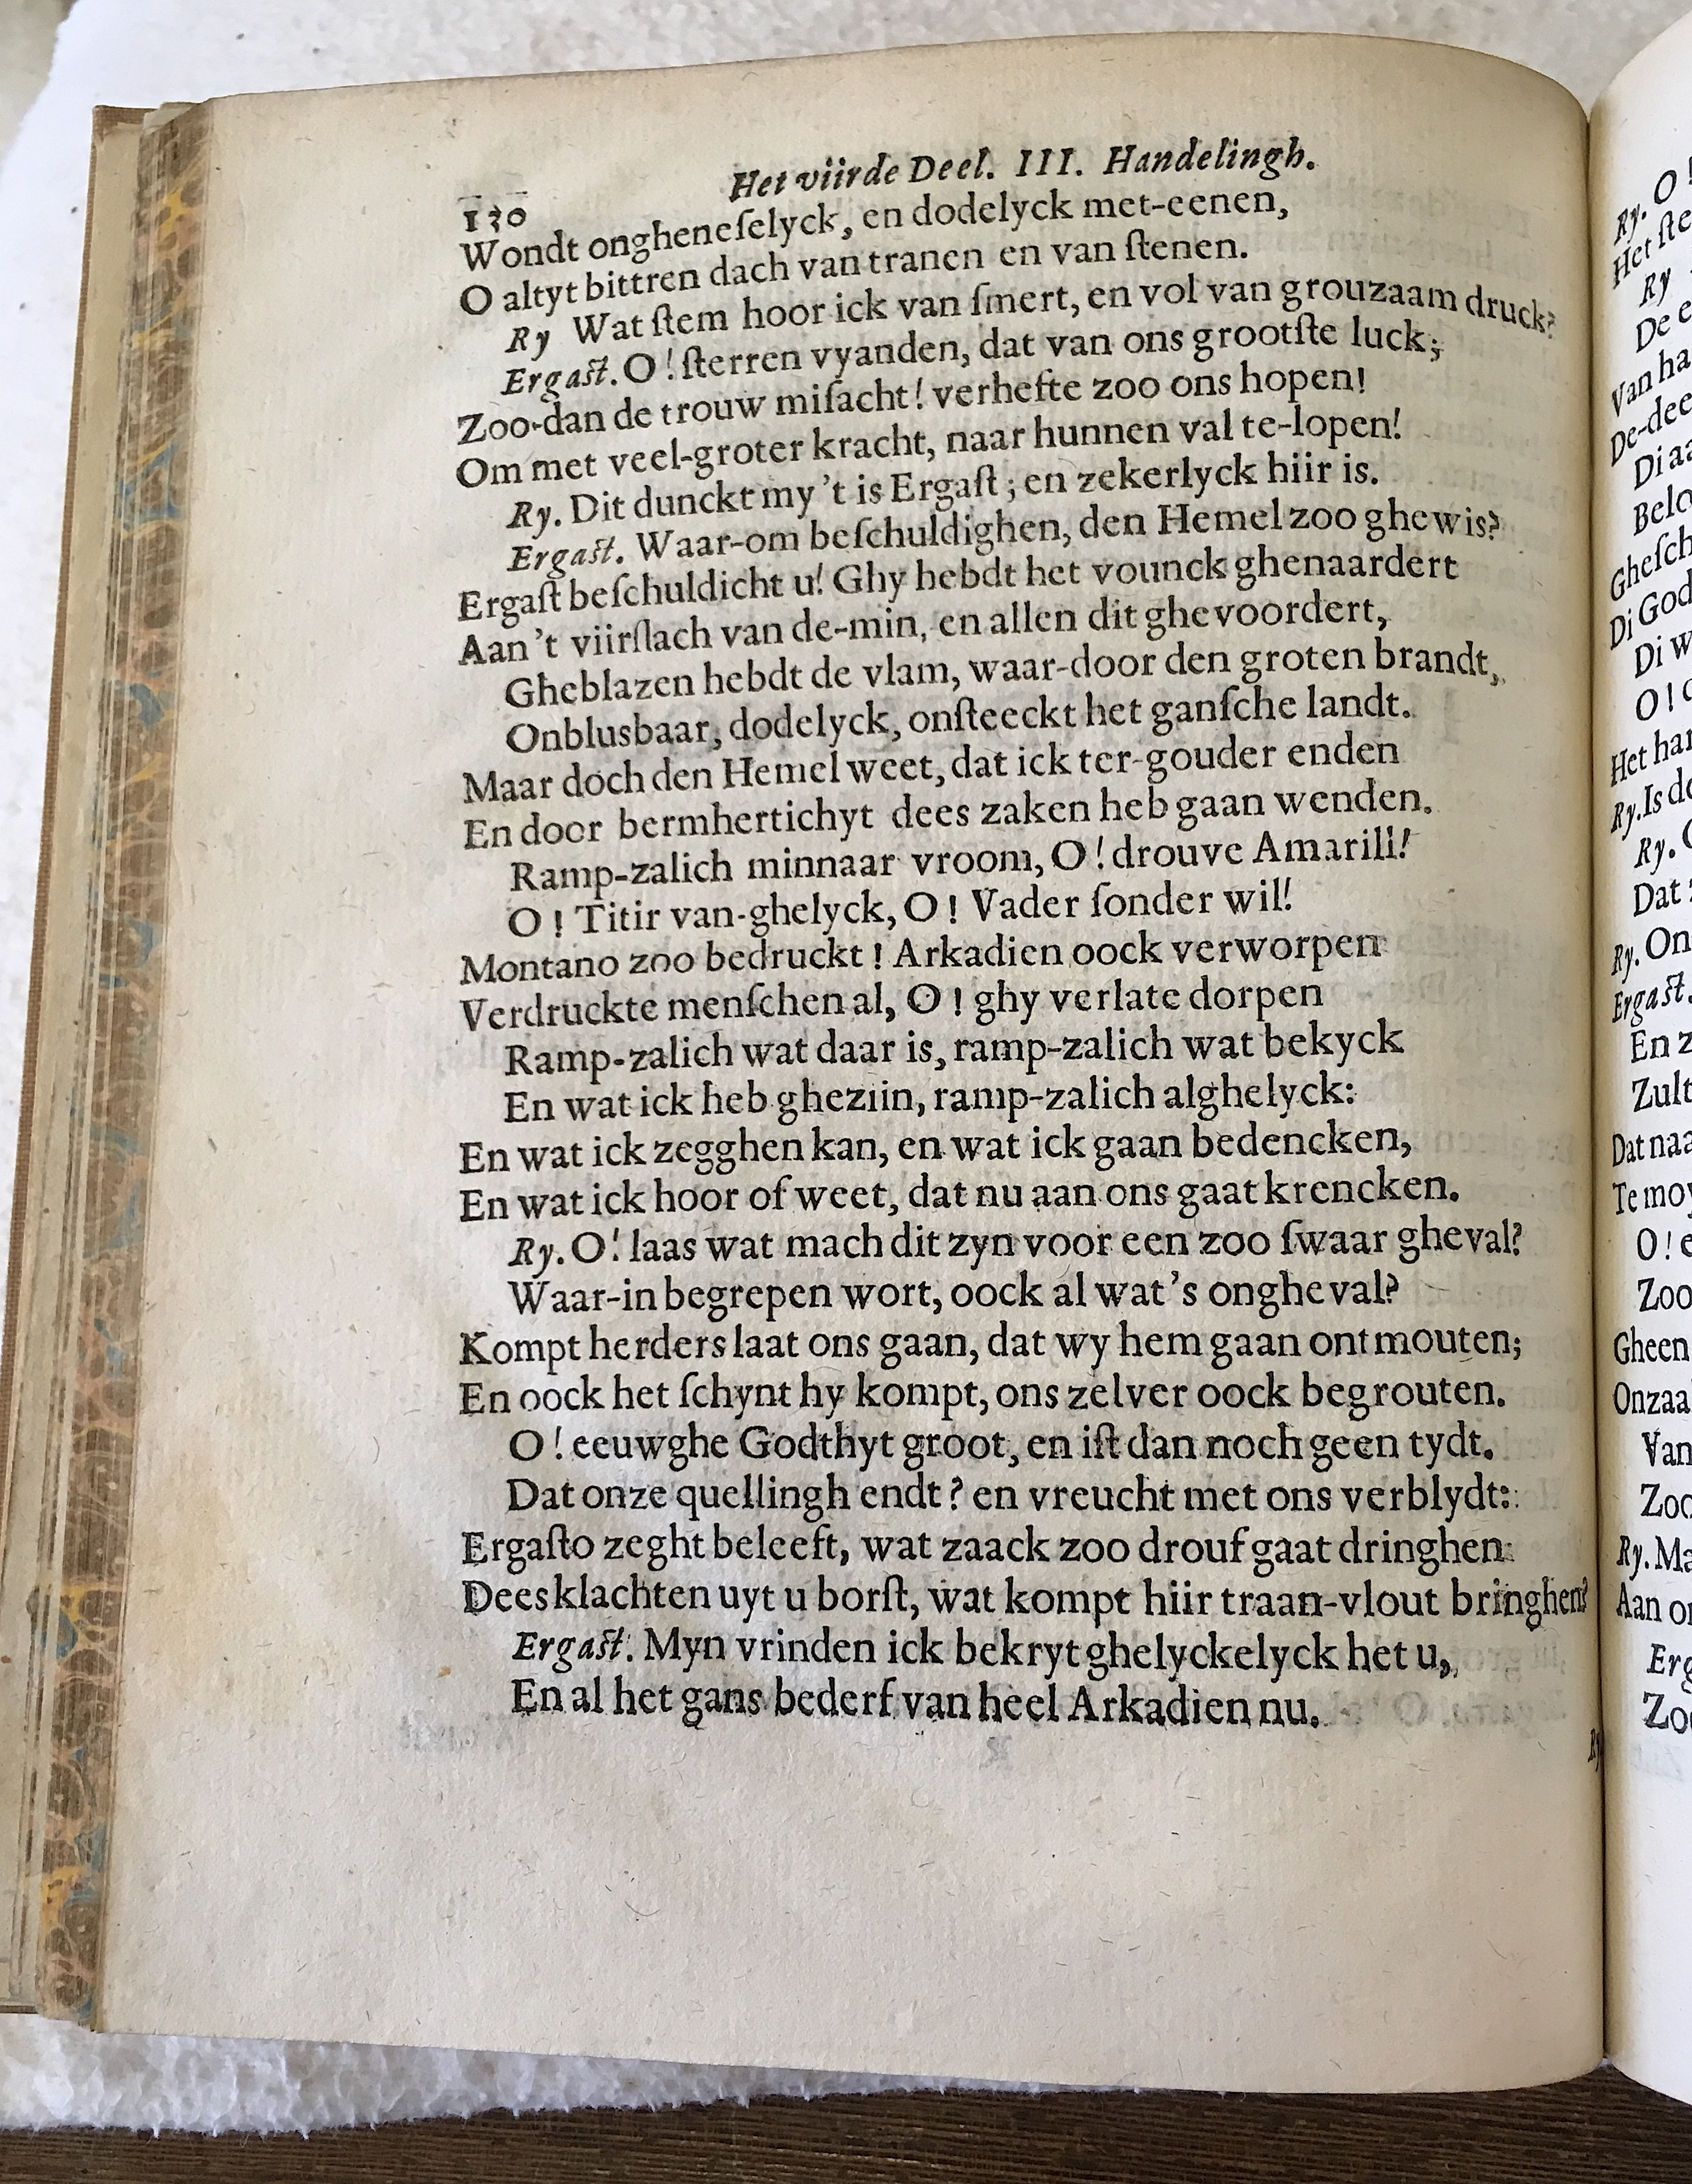 Het viirde Deel. III. Handelingh.
130
Wondt ongheneſelyck, en dodelyck met-eenen,
O altyt bittren dach van tranen en van ſtenen.
Ry Wat ſtem hoor ick van ſmert, en vol van grouzaam druck?
Ergaſt. O! ſterren vyanden, dat van ons grootſte luck;
Zoo-dan de trouw miſacht! verhefte zoo ons hopen!
Om met veel-groter kracht, naar hunnen val te-lopen!
Ry. Dit dunckt my 't is Ergaſt; en zekerlyck hiir is.
Ergaſt. Waar-om beſchuldighen, den Hemel zoo ghewis?
Ergaſt beſchuldicht u! Ghy hebdt het vounck ghenaardert
Aan 't viirſlach van de-min, en allen dit ghevoordert,
Gheblazen hebdt de vlam, waar-door den groten brandt,
Onblusbaar, dodelyck, onſteeckt het ganſche landt.
Maar doch den Hemel weet, dat ick ter-gouder enden
En door bermhertichyt dees zaken heb gaan wenden.
Ramp-zalich minnaar vroom, O! drouve Amarill!
O! Titir van-ghelyck, O! Vader ſonder wil!
Montano zoo bedruckt! Arkadien oock verworpen
Verdruckte menſchen al, O! ghy verlate dorpen
Ramp-zalich wat daar is, ramp-zalich wat bekyck
En wat ick heb gheziin, ramp-zalich alghelyck:
En wat ick zegghen kan, en wat ick gaan bedencken,
En wat ick hoor of weet, dat nu aan ons gaat krencken.
Ry. O! laas wat mach dit zyn voor een zoo ſwaar gheval?
Waar-in begrepen wort, oock al wat's ongheval?
Kompt herders laat ons gaan, dat wy hem gaan ontmouten;
En oock het ſchynt hy kompt, ons zelver oock begrouten.
O! eeuwghe Godthyt groot, en iſt dan noch geen tydt.
Dat onze quellingh endt? en vreucht met ons verblydt:
Ergaſto zeght beleeft, wat zaack zoo drouf gaat dringhen
Dees klachten uyt u borſt, wat kompt hiir traan-vlout bringhen?
Ergaſt. Myn vrinden ick bekryt ghelyckelyck het u,
En al het gans bederf van heel Arkadien nu.
Ry. O!
Het ſte
Ry
De e
Van ha
De-dee
Di aa
Belo
Gheſch
Di God
Di w
O! 
Het har
Ry. Is do
Ry.
Dat
Ry. On
Ergaſt.
En z
Zult
Dat naa
Te moy
O! e
Zoo
Gheen
Onzaa
Van
Zoo
Ry. Ma
Aan on
Erg
Zoo